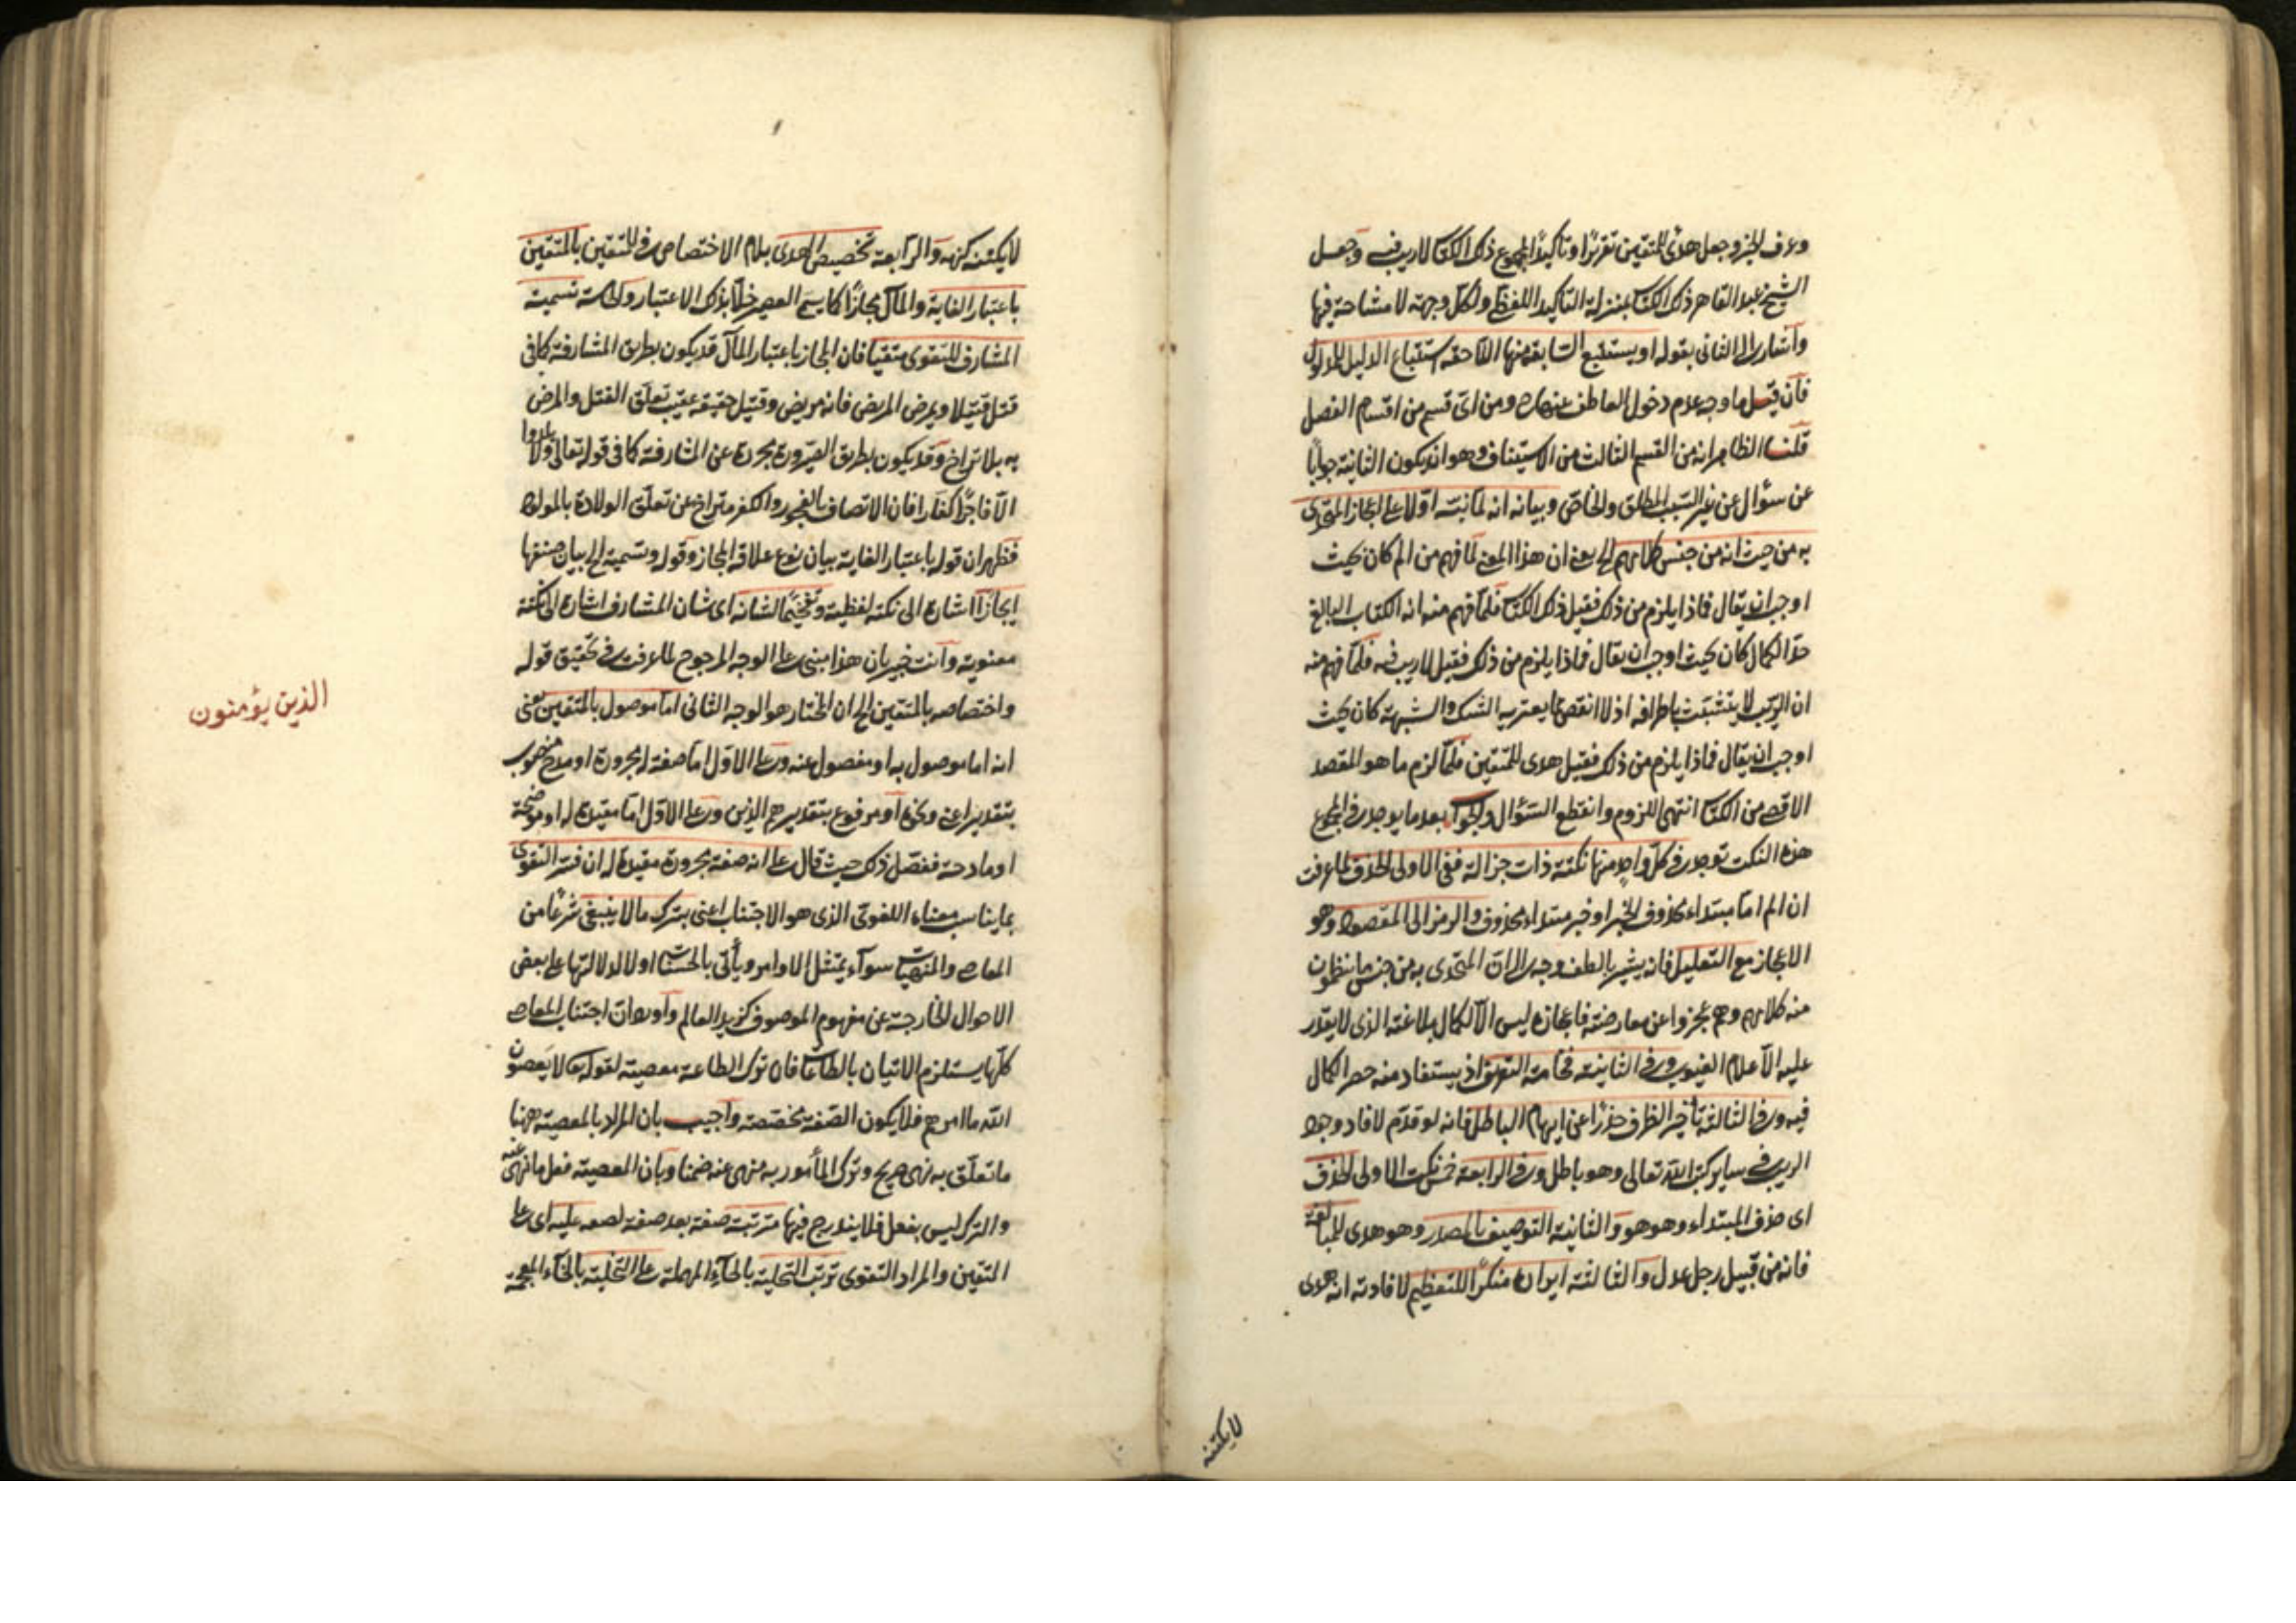 وعرف الخبر وجعل هدى للمتقين تقريرًا وتأكيدًا لمجموع ذلك الكتاب لا ريب فيه وجعل
الشيخ عبد القاهر ذلك الكتاب بمنزلة التأكيد اللفظي ولكل وجهة لا مشاحة فيها
وأشار الى الثاني بقوله او يستتبع السابقة منها اللاحقة استتباع الدليل للمدلول
فان قيل ما وجه عدم دخول العاطف عنها ومن اى قسم من اقسام الفصل
قلنا الظاهر انه من القسم الثالث من الاستيناف وهو ان يكون الثانية جوابًا
عن سؤال عن غير السبب المطلق والخاص وبيانه انه لما نبه اولا على اعجاز المتحدى
به من حيث انه من جنس كلامهم الخ يعني ان هذا المعنى لما فهم من الم كان بحيث
اوجب ان يقال فماذا يلزم من ذلك فقيل ذلك الكتاب فلما فهم منه انه الكتاب البالغ
حد الكمال كان بحيث اوجب ان يقال فماذا يلزم من ذلك فقيل لا ريب فيه فلما فهم منه
ان الريب لا يتشبث باطرافه اذ لا انقص مما يعتريه الشك والشبهة كان بحيث
اوجب ان يقال فماذا يلزم من ذلك فقيل هدى للمتقين فلما لزم ما هو المقصد
الاقصى من الكتاب انتهى اللزوم وانقطع السؤال والجواب بعد ما يوجد في المجموع
هذه النكت توجد في كل واحد منها نكتة ذات جزالة ففي الاولى الحذف لما عرفت
ان الم اما مبتداء محذوف الخبر او خبر مبتداء محذوف والرمز الى المقصود وهو
الاعجاز مع التعليل فانه يشير بالطف وجه الى ان المتحدى به من جنس ما ينظمون
منه كلامهم وهم عجزوا عن معارضته فاعجازه ليس الا لكمال بلاغته الذى لا يقدر
عليه الا علام الغيوب وفي الثانية فخامة التعريف اذ يستفاد منه حصر الكمال
فيه وفي الثالثة تأخير الظرف حذرًا عن ايهام الباطل فانه لو قدم لافاد وجود
الريب في ساير كتب الله تعالى وهو باطل وفي الرابعة خمس نكت الاولى الحذف
اى حذف المبتداء وهو هو والثانية التوصيف بالمصدر وهو هدى للمبالغة
فانه من قبيل رجل عدل والثالثة ايراده منكرًا للتعظيم لافادته انه هدى
لا يكتنه
لا يكتنه كنهه والرابعة تخصيص الهدى بلام الاختصاص في للمتقين بالمتقين
باعتبار الغاية والمآل مجازًا كما يسمى العصير خلا بذلك الاعتبار والخامسة تسمية
المشارف للتقوى متقيا فان المجاز باعتبار المآل قد يكون بطريق المشارفة كما في
قتل قتيلا ويمرض المريض فانه مريض وقتيل حقيقة عقيب تعلق القتل والمرض
به بلا تراخ وقد يكون بطريق الصيرورة مجردة عن المشارفة كما في قوله تعالى ولا يلدوا
الا فاجرًا كفارا فان الاتصاف بالفجور والكفر متراخ عن تعلق الولادة بالمولود
فظهر ان قوله باعتبار الغاية بيان نوع علاقة المجاز وقوله وتسمية الخ بيان صنفها
ايجازًا اشارة الى نكتة لفظية وتفخيمًا لشانه اى شان المشارف اشارة الى نكتة
معنوية وانت خبير بان هذا مبنى على الوجه المرجوح لما عرفت في تحقيق قوله
واختصاصه بالمتقين الخ ان المختار هو الوجه الثاني اما موصول بالمتقين يعنى
الذين يؤمنون
انه اما موصول به او مفصول عنه وعلى الاول اما صفة له مجرورة او مدح منصوب
بتقدير اعني ونحوه او مرفوع بتقدير هم الذين وعلى الاول اما مقيدة له او موضحة
او مادحة ففصل ذلك حيث قال على انه صفة مجرورة مقيدة له ان فسر التقوى
بما يناسب معناه اللغوى الذى هو الاجتناب اعنى بترك ما لا ينبغى شرعًا من
المعاصى والمنهيات سوآء يمتثل الاوامر ويأتى بالحسنات اولا لدلالتها على بعض
الاحوال الخارجة عن مفهوم الموصوف كزيد العالم واورد ان اجتناب المعاصى
كلها يستلزم الاتيان بالطاعات فان ترك الطاعة معصية لقوله تعالى لا يعصون
الله ما امرهم فلا يكون الصفة مخصصة واجيب بان المراد بالمعصية ههنا
ما تعلق به نهى صريح وترك المأمور به منهى عنه ضمنا وبان المعصية فعل ما نهى عنه
والترك ليس بفعل فلا يندرج فيها مترتبة صفة بعد صفة لصفه عليه اى على
المتقين والمراد التقوى ترتب التحلية بالحآء المهملة على التخلية بالخآء المعجمة